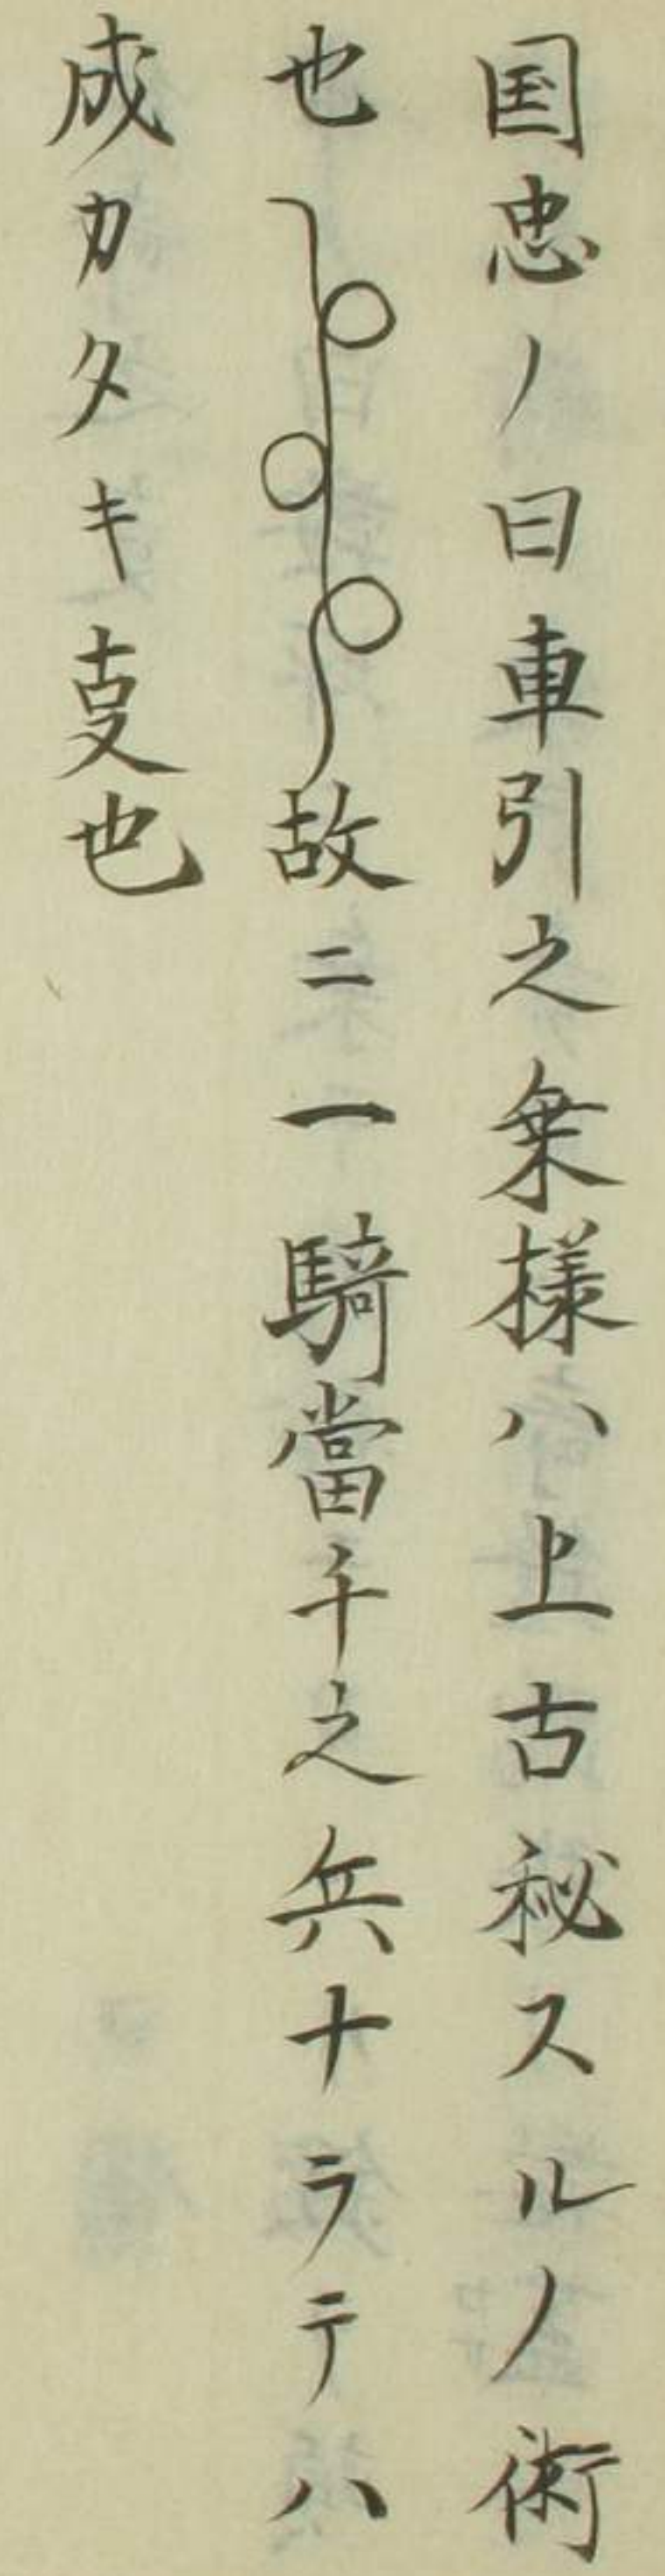 国忠ノ曰車引之乗様ハ上古秘スルノ術
也故ニ一騎當千之兵ナラテハ
成カタキ㕝也